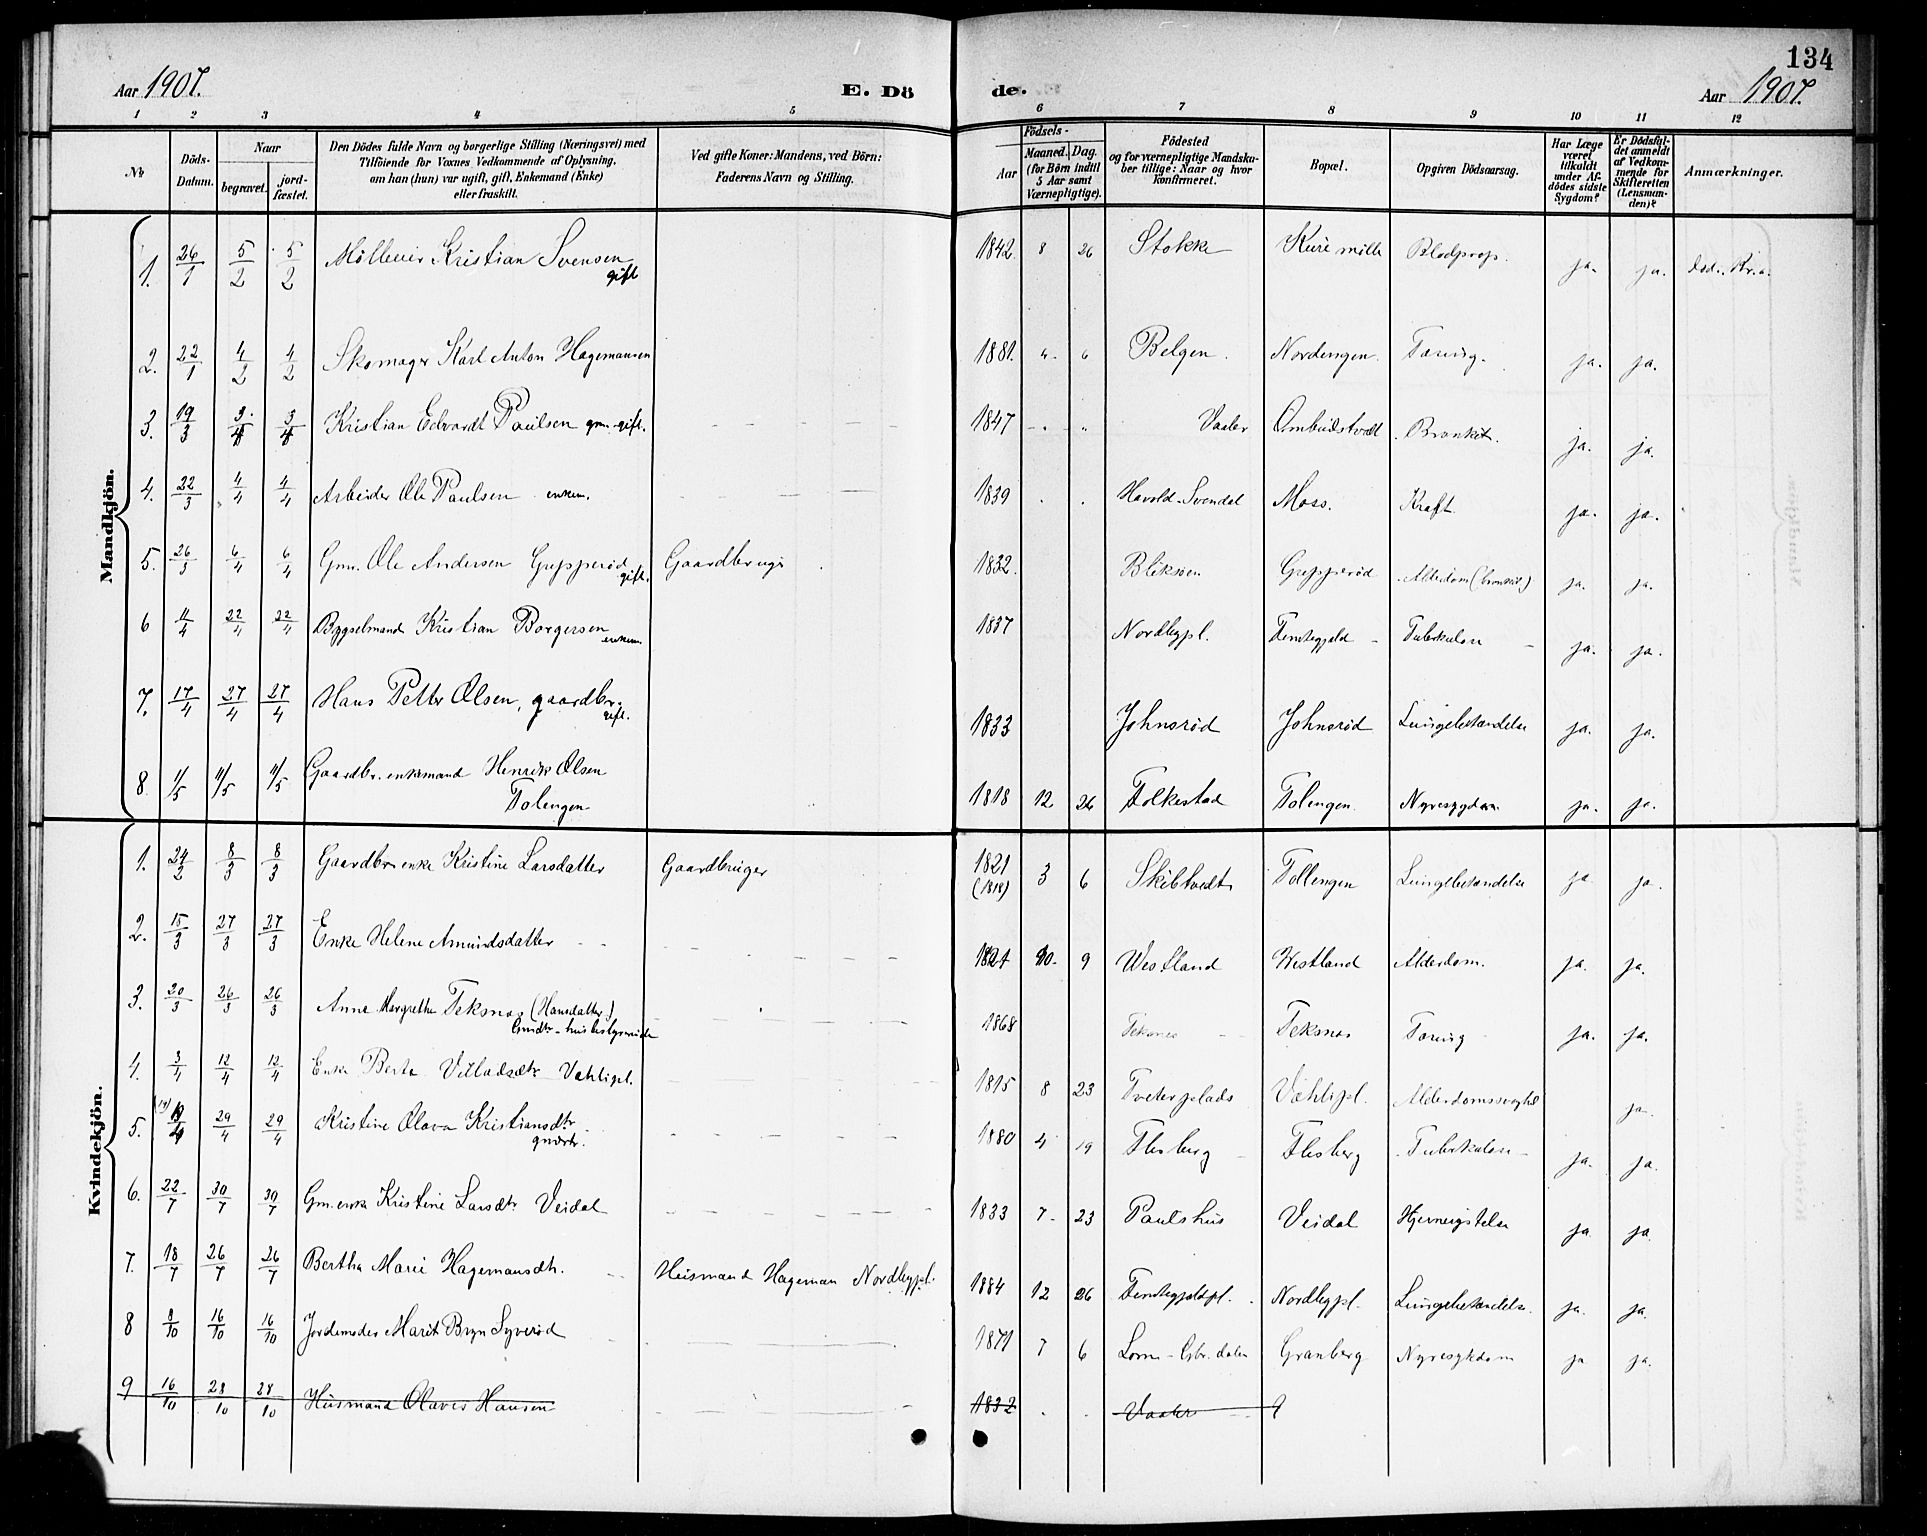 134
Aar 1907. E. Dö de. Aar 1907.
1 2 3 4 5 6 7 8 9 10 11 12
No
Döds-Datum.
Naar
begravet.
jord-fæstet.
Den Dödes fulde Navn og borgerlige Stilling (Næringsvei) med
Tilföiende for Voxnes Vedkommende af Oplysning,
om han (hun) var ugift, gift, Enkemand (Enke)
eller fraskilt.
Ved gifte Koner: Mandens, ved Börn:
Faderens Navn og Stilling.
Födsels-
Aar
Maaned. Dag.
(for Börn indtil
5 Aar samt
Værnepligtige).
Födested
og for værnepligtige Mandska-
ber tillige: Naar og hvor
konfirmeret.
Bopæl.
Opgiven Dödsaarsag.
Har Læge
været
tilkaldt
under Af-
dödes sidste
Sygdom?
Er Dödsfal-
det anmeldt
af Vedkom-
mende for
Skifteretten
(Lensman-
den)?
Anmærkninger.
Mandkjön.
1. 26/1 5/2 5/2 Kristian Svensen gift 1842 8 26 Stokke Kure mölle Blodprop. ja. ja. död. Kr.a.
2. 22/1 4/2 4/2 Skomager Karl Anton Hagemansen 1881. 4 6 Belgen. Nordengen. Tæring. ja. ja.
3. 19/3 3/4 3/4 Kristian Edvardt Paulsen gm. gift. 1847 Vaaler Ombudstvedt Bronkit. ja. ja.
4. 22/3 4/4 4/4 Arbeider Ole Paulsen enkem. 1839 Havold-Svendal Moss. Kræft ja. ja.
5. 26/3 6/4 6/4 Gm. Ole Andersen Grepperød gift. Gaardbruger 1832. Bliksøen Grepperød Alderdom (bronkit.) ja. ja.
6 11/4 22/4 22/4 Bygselmand Kristian Borgersen enkem. 1837 Nordbypl. Tuberkulose ja. ja.
7. 17/4 27/4 27/4 Hans Petter Olsen, gaardbr. gift. 1833 Johnsrød Johnsrød Lungebetændelse ja. ja.
8. 1/5 11/5 11/5 Gaardbr. enkemand Henrik Olsen
Tolengen 1818 12 26 Folkestad Tolengen. Nyresygdom ja. ja.
Kvindekjön.
1. 24/2 8/3 8/3 Gaardbr. enke Kristine Larsdatter Gaardbruger 1821 (1818) 3 6 Skibtvedt Tollengen Lungebetændelse ja ja.
2. 15/3 27/3 27/3 Enke Helene Amundsdatter 1821 10. 9 Westland Westland Alderdom. ja. ja.
3. 20/3 26/3 26/3 Anne Margrethe Teksnæs (Hansdatter)
Gmdtr. husbestyrerinde 1868 Teksnes Teksnæs Tæring ja. ja.
4. 3/4 12/4 12/4 Enke Berte Vahlipl. 1815 8 23 Tveterplads Vahlipl. ja.
5. 29/4 29/4 Kristine Olava Kristiansdtr. 1880 4 19 Flesberg Flesberg Tuberkulose ja. ja.
6. 22/7 30/7 30/7 Gm. enke Kristine Larsdtr. Veidal 1833 7. 23 Paulshus Veidal ja. ja.
7. 18/7 26/7 26/7 Bertha Marie Hagemansdtr. Husmand Hageman Nordbypl. 1884 12 26 Nordbypl. Lungebetændelse. ja. ja.
8 8/10 16/10 16/10 Jordemoder Marit Bryn Syverød 1871 7 6 Lom - Gbr. dalen Granberg Nyresykdom ja ja.
9 16/10 28/10 28/10 Husmand Olaves Hansen 1832 Vaaler ?